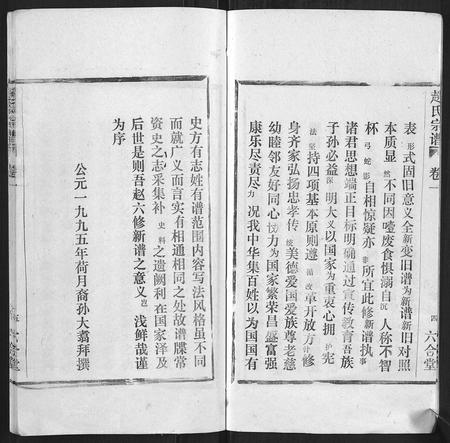 赵氏宗谱
卷一
四
六合堂
表形式固旧意义全新变旧谱为新谱新旧对照
本质显然不同因噎废食惧溺自沉人称不智
杯弓蛇影自相惊疑亦非所宜此修新谱执事
诸君思想端正目标明确通过宣传教育吾族
子孙必益深明大义以国家为重衷心拥护宪
法坚持四项基本原则遵循改革开放方针修
身齐家弘扬忠孝传统美德爱国爱族尊老慈
幼睦邻友好同心协力为国家繁荣昌盛富强
康乐尽责尽力况我中华集百姓以为国国有
史方有志姓有谱范围内容写法风格虽不同
而就广义而言实有相通相同之处故谱牒常
资史之志采集补史料之遗阙利在国家泽及
后世是则吾赵六修新谱之意义也浅鲜哉谨
为序
公元一九九五年荷月裔孙大翥拜撰